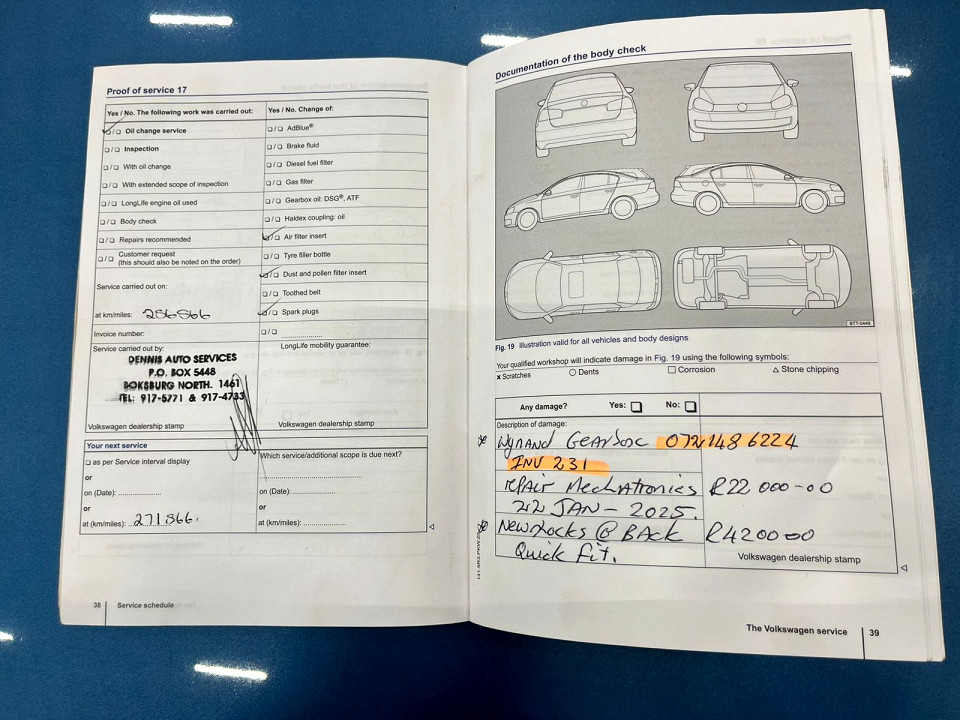 Proof of service 17
Yes / No. The following work was carried out:
☑/☐ Oil change service
☐/☐ Inspection
☐/☐ With oil change
☐/☐ With extended scope of inspection
☐/☐ LongLife engine oil used
☐/☐ Body check
☐/☐ Repairs recommended
☐/☐ Customer request
(this should also be noted on the order)
Service carried out on:
at km/miles: 256866
Invoice number:
Service carried out by:
DENNIS AUTO SERVICES
P.O. BOX 5448
BOKSBURG NORTH. 1461
TEL: 917-5771 & 917-4733
Volkswagen dealership stamp
Yes / No. Change of:
☐/☐ AdBlue®
☐/☐ Brake fluid
☐/☐ Diesel fuel filter
☐/☐ Gas filter
☐/☐ Gearbox oil: DSG®, ATF
☐/☐ Haldex coupling: oil
☑/☐ Air filter insert
☐/☐ Tyre filler bottle
☑/☐ Dust and pollen filter insert
☐/☐ Toothed belt
☑/☐ Spark plugs
☐/☐ ....................
LongLife mobility guarantee:
Volkswagen dealership stamp
Your next service
☐ as per Service interval display
or
on (Date): ....................
or
at (km/miles): 271866
Which service/additional scope is due next?
on (Date): ....................
or
at (km/miles): ....................
38 Service schedule
Documentation of the body check
BTT-0449
Fig. 19 Illustration valid for all vehicles and body designs
Your qualified workshop will indicate damage in Fig. 19 using the following symbols:
x Scratches ○ Dents □ Corrosion △ Stone chipping
Any damage? Yes: ☐ No: ☐
Description of damage:
Wynand Gearbox 072 148 6224
INV 231
repair Mechatronics R22 000-00
22 JAN - 2025.
New Shocks @ BACK R4200-00
Quick Fit.
Volkswagen dealership stamp
The Volkswagen service 39